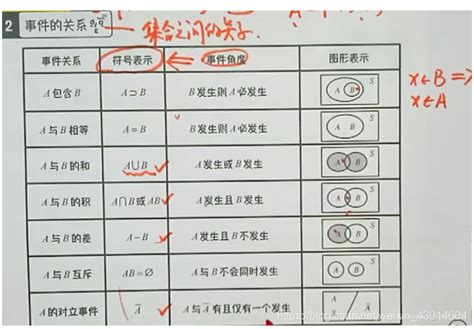 2 事件的关系 集合之间的关系.
事件关系 符号表示 事件角度 图形表示
A包含B A⊃B B发生则A必发生 A B S
x∈B ⇒
x∈A
A与B相等 A=B B发生则A必发生 A B S
A与B的和 A∪B A发生或B发生 A B S
A与B的积 A∩B或AB A发生且B发生 A B S
A与B的差 A-B A发生且B不发生 A B S
A与B互斥 AB=∅ A与B不会同时发生 A B S
A的对立事件 A̅ A与A̅有且仅有一个发生 A A̅
https://blog.csdn.net/weixin_43914604